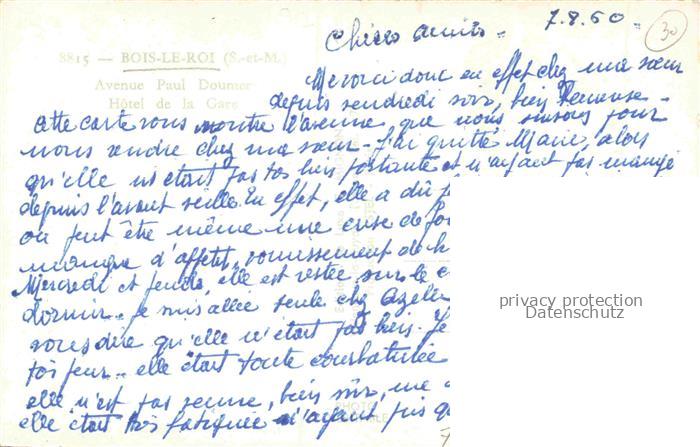 7.8.60.
30
Chers amis.
8815 — BOIS-LE-ROI (S.-et-M.)
Avenue Paul Doumer
Hôtel de la Gare
Me voici donc en effet chez ma sœur
depuis vendredi soir, bien heureuse.
Cette carte vous montre l'avenue que nous suivons pour
nous rendre chez ma sœur. J'ai quitté Marie, alors
qu'elle n'était pas très bien portante et n'ayant pas mangé
depuis l'avant veille. En effet, elle a dû
ou peut être même une crise de
manque d'appétit, vomissement de
Mercredi et jeudi, elle est restée sur le
dormir. Je suis allée seule chez
vous dire qu'elle n'était pas bien. Je
elle était toute courbaturée
elle n'est pas venue, bien sûr, me
elle était très fatiguée n'ayant pris
privacy protection
Datenschutz